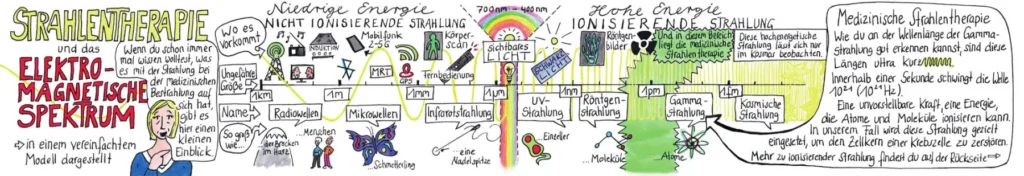 STRAHLENTHERAPIE
und das
ELEKTRO-
MAGNETISCHE
SPEKTRUM
⇒ in einem vereinfachtem
Modell dargestellt
Wenn du schon immer
mal wissen wolltest, was
es mit der Strahlung bei
der Medizinischen
Bestrahlung auf
sich hat,
gibt es
hier einen
kleinen
Einblick.
Niedrige Energie
NICHT IONISIERENDE STRAHLUNG
700nm - 400nm
Hohe Energie
IONISIERENDE STRAHLUNG
Wo es
Vorkommt
INDUKTION
Mobilfunk
2-5G
MRT
GPS
Körper-
scan
Fernbedienung
sichtbares
LICHT
SCHWARZ
LICHT
Röntgen
bilder
Und in diesem Bereich
liegt die medizinische
Strahlentherapie
Diese hochenergetische
Strahlung lässt sich nur
im Kosmos beobachten.
Ungefähre
Größe
1km
1m
1mm
1µm
1nm
1pm
1fm
Name
Radiowellen
Mikrowellen
Infrarotstrahlung
UV-
Strahlung
Röntgen-
Strahlung
Gamma-
Strahlung
Kosmische
Strahlung
So groß
wie...
der Brocken
im Harz
...Menschen
...Schmetterling
...eine
Nadelspitze
...Einzeller
...Moleküle
...Atome
Medizinische Strahlentherapie
Wie du an der Wellenlänge der Gamma-
Strahlung gut erkennen kannst, sind diese
Längen ultra kurz
Innerhalb einer Sekunde schwingt die Welle
10²¹ (10²¹ Hz).
Eine unvorstellbare Kraft, eine Energie,
die Atome und Moleküle ionisieren kann.
In unserem Fall wird diese Strahlung gezielt
eingesetzt, um den Zellkern einer Krebszelle zu zerstören.
Mehr zu ionisierender Strahlung findest du auf der Rückseite ⇒